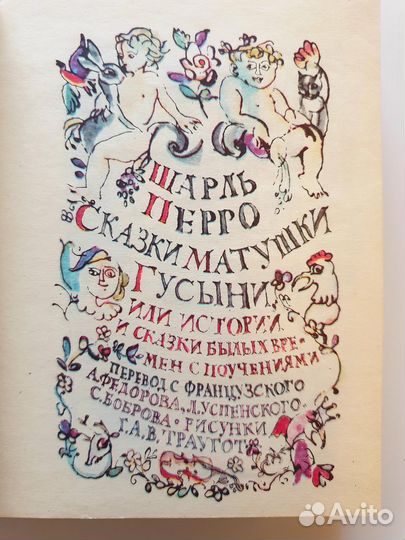 ШАРЛЬ
ПЕРРО
СКАЗКИ МАТУШКИ
ГУСЫНИ,
ИЛИ ИСТОРИИ
И СКАЗКИ БЫЛЫХ ВРЕ-
МЕН С ПОУЧЕНИЯМИ
ПЕРЕВОД С ФРАНЦУЗСКОГО
А.ФЕДОРОВА, Л.УСПЕНСКОГО,
С.БОБРОВА • РИСУНКИ
Г.А.В. ТРАУГОТ
Avito